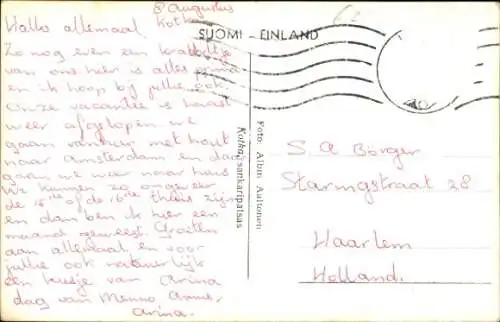 8 augustus
Kotka
Hallo allemaal
Zo nog even een krabbeltje
van ons hier is alles prima
en ik hoop bij jullie ook.
Onze vacantie is haast
weer afgelopen we
gaan vanuur met hout
naar Amsterdam en dan
gaan we weer naar huis
We kunnen zo ongeveer
de 15de of de 16de thuis zijn
en dan ben ik hier een
maand geweest. Groeten
aan allemaal en voor
jullie ook natuurlijk
een kusje van Arina
dag van Menno
Arina.
SUOMI - FINLAND
Kotka, sankaripatsas
Foto: Albin Aaltonen
S. A Börger
Staringstraat 28
Haarlem
Holland.